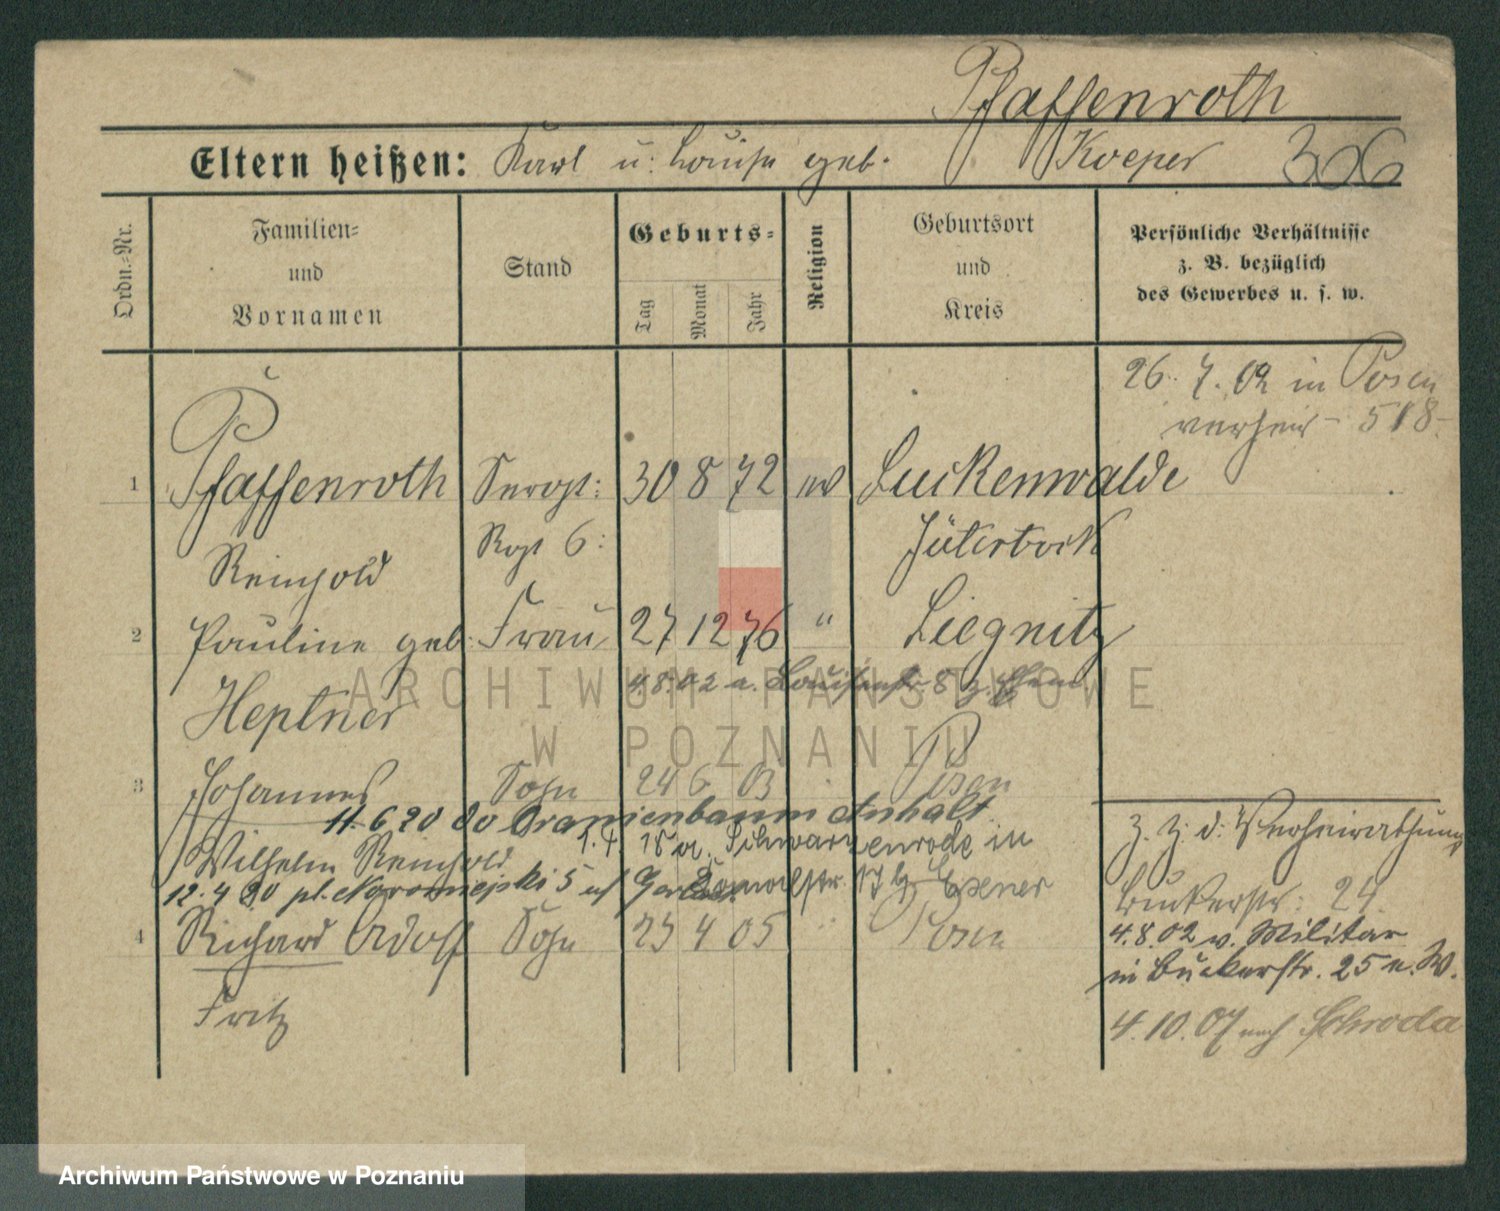 Pfaffenroth
Eltern heißen: Karl u. Louise geb. Koeper 306
Ordn.-Nr.
Familien-
und
Vornamen
Stand
Geburts-
Tag
Monat
Jahr
Religion
Geburtsort
und
Kreis
Persönliche Verhältnisse
z. B. bezüglich
des Gewerbes u. s. w.
26. 7. 02 in Posen
verheir. 518
1 Pfaffenroth Sergt: 30 8 72 ev Luckenwalde
Reinhold Rgt 6: Jüterbock
2 Pauline geb. Frau 27 12 76 " Liegnitz
4.8.02 a. Louisenstr 8
Heptner
3 Johannes Sohn 24 6 03 Posen
11.6.20 Oranienbaum Anhalt
Wilhelm Reinhold
1.4. Schwarzenrode in
12.4.20 pl. Nowomiejski 5 Exener
4 Richard Adolf Sohn 23 4 05 Posen
Fritz
z. Z. d. Verheirathung
Bukerstr: 24
4.8.02 v. Militär
in Bukerstr. 25 n. W.
4.10.07 nach Schroda
ARCHIWUM PAŃSTWOWE
W POZNANIU
Archiwum Państwowe w Poznaniu